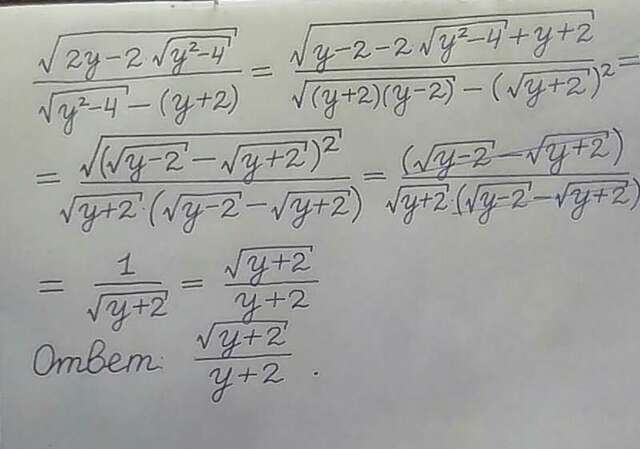 √(2y-2√(y²-4)) / (√(y²-4) - (y+2)) = √(y-2-2√(y²-4)+y+2) / (√((y+2)(y-2)) - (√(y+2))²) =
= √((√(y-2) - √(y+2))²) / (√(y+2)·(√(y-2) - √(y+2))) = (√(y-2) - √(y+2)) / (√(y+2)·(√(y-2) - √(y+2)))
= 1 / √(y+2) = √(y+2) / (y+2)
Ответ: √(y+2) / (y+2) .